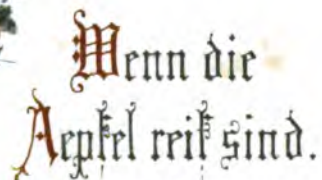 Wenn die
Aepfel reif sind.